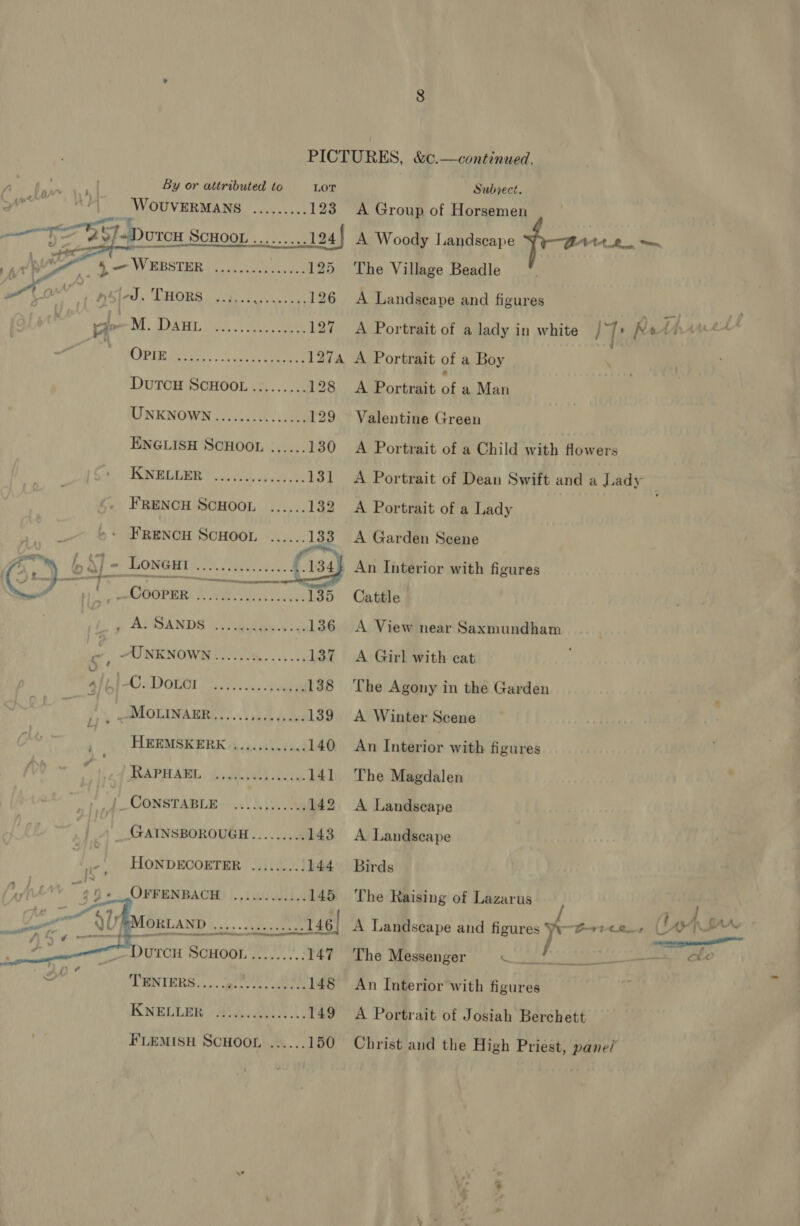 8
PICTURES, &c.—continued.
By or attributed to LOT Subject.
WOUVERMANS ......... 123 A Group of Horsemen
DUTCH SCHOOL ......... 124 A Woody Landscape
WEBSTER ............... 125 The Village Beadle
J. THORS ............... 126 A Landscape and figures
M. DAHL ............... 127 A Portrait of a lady in white
OPIE ..................... 127A A Portrait of a Boy
DUTCH SCHOOL ......... 128 A Portrait of a Man
UNKNOWN ............... 129 Valentine Green
ENGLISH SCHOOL ...... 130 A Portrait of a Child with flowers
KNELLER ............... 131 A Portrait of Dean Swift and a Lady
FRENCH SCHOOL ...... 132 A Portrait of a Lady
FRENCH SCHOOL ...... 133 A Garden Scene
LONGHI ............... 134 An Interior with figures
COOPER ............... 135 Cattle
A. SANDS ............... 136 A View near Saxmundham
UNKNOWN ............... 137 A Girl with cat
C. DOLCI ............... 138 The Agony in the Garden
MOLINAER ............... 139 A Winter Scene
HEEMSKERK ............ 140 An Interior with figures
RAPHAEL ............... 141 The Magdalen
CONSTABLE ............ 142 A Landscape
GAINSBOROUGH ......... 143 A Landscape
HONDECOETER ......... 144 Birds
OFFENBACH ............ 145 The Raising of Lazarus
MORLAND ............... 146 A Landscape and figures
DUTCH SCHOOL ......... 147 The Messenger do
TENIERS ............... 148 An Interior with figures
KNELLER ............... 149 A Portrait of Josiah Berchett
FLEMISH SCHOOL ...... 150 Christ and the High Priest, panel